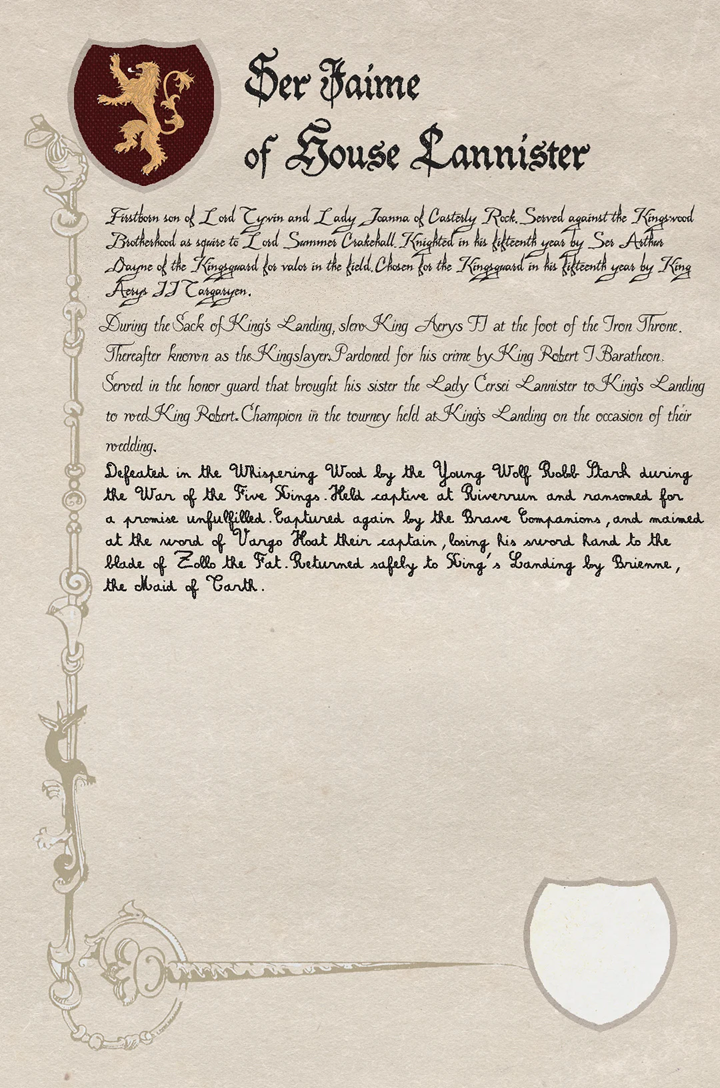 Ser Jaime
of House Lannister
Firstborn son of Lord Tywin and Lady Joanna of Casterly Rock. Served against the Kingswood
Brotherhood as squire to Lord Summer Crakehall. Knighted in his fifteenth year by Ser Arthur
Dayne of the Kingsguard for valor in the field. Chosen for the Kingsguard in his fifteenth year by King
Aerys II Targaryen.
During the Sack of King's Landing, slew King Aerys II at the foot of the Iron Throne.
Thereafter known as the Kingslayer. Pardoned for his crime by King Robert I Baratheon.
Served in the honor guard that brought his sister the Lady Cersei Lannister to King's Landing
to wed King Robert. Champion in the tourney held at King's Landing on the occasion of their
wedding.
Defeated in the Whispering Wood by the Young Wolf Robb Stark during
the War of the Five Kings. Held captive at Riverrun and ransomed for
a promise unfulfilled. Captured again by the Brave Companions, and maimed
at the word of Vargo Hoat their captain, losing his sword hand to the
blade of Zollo the Fat. Returned safely to King's Landing by Brienne,
the Maid of Tarth.